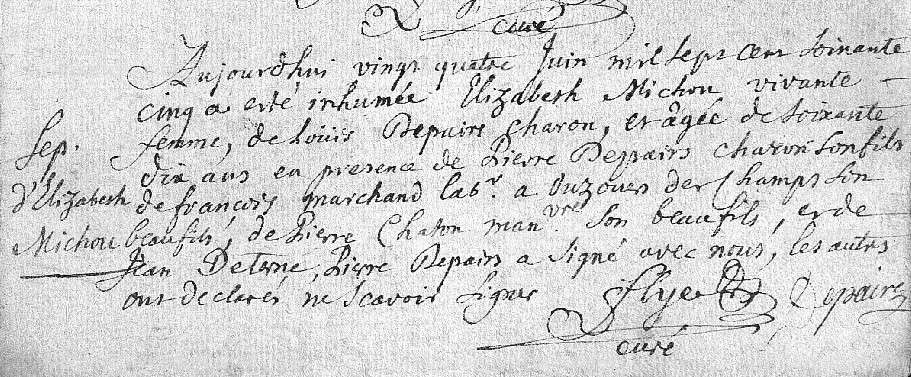 curé
Aujourdhui vingt quatre Juin mil sept cent soixante
cinq a eté inhumée Elizabeth Michou vivante
femme, de Loüis Depairs charon, et âgée de soixante
Sep.
dix ans en presence de Pierre Depairs charon son fils
d'Elizabeth
de françois marchand labr. a ouzouer des Champs son
Michou
beaufils, de Pierre Chaton manvre. son beaufils, et de
Jean Deterne, Pierre Depairs a signé avec nous, les autres
ont declarés ne scavoir signer
flye Depairs
curé